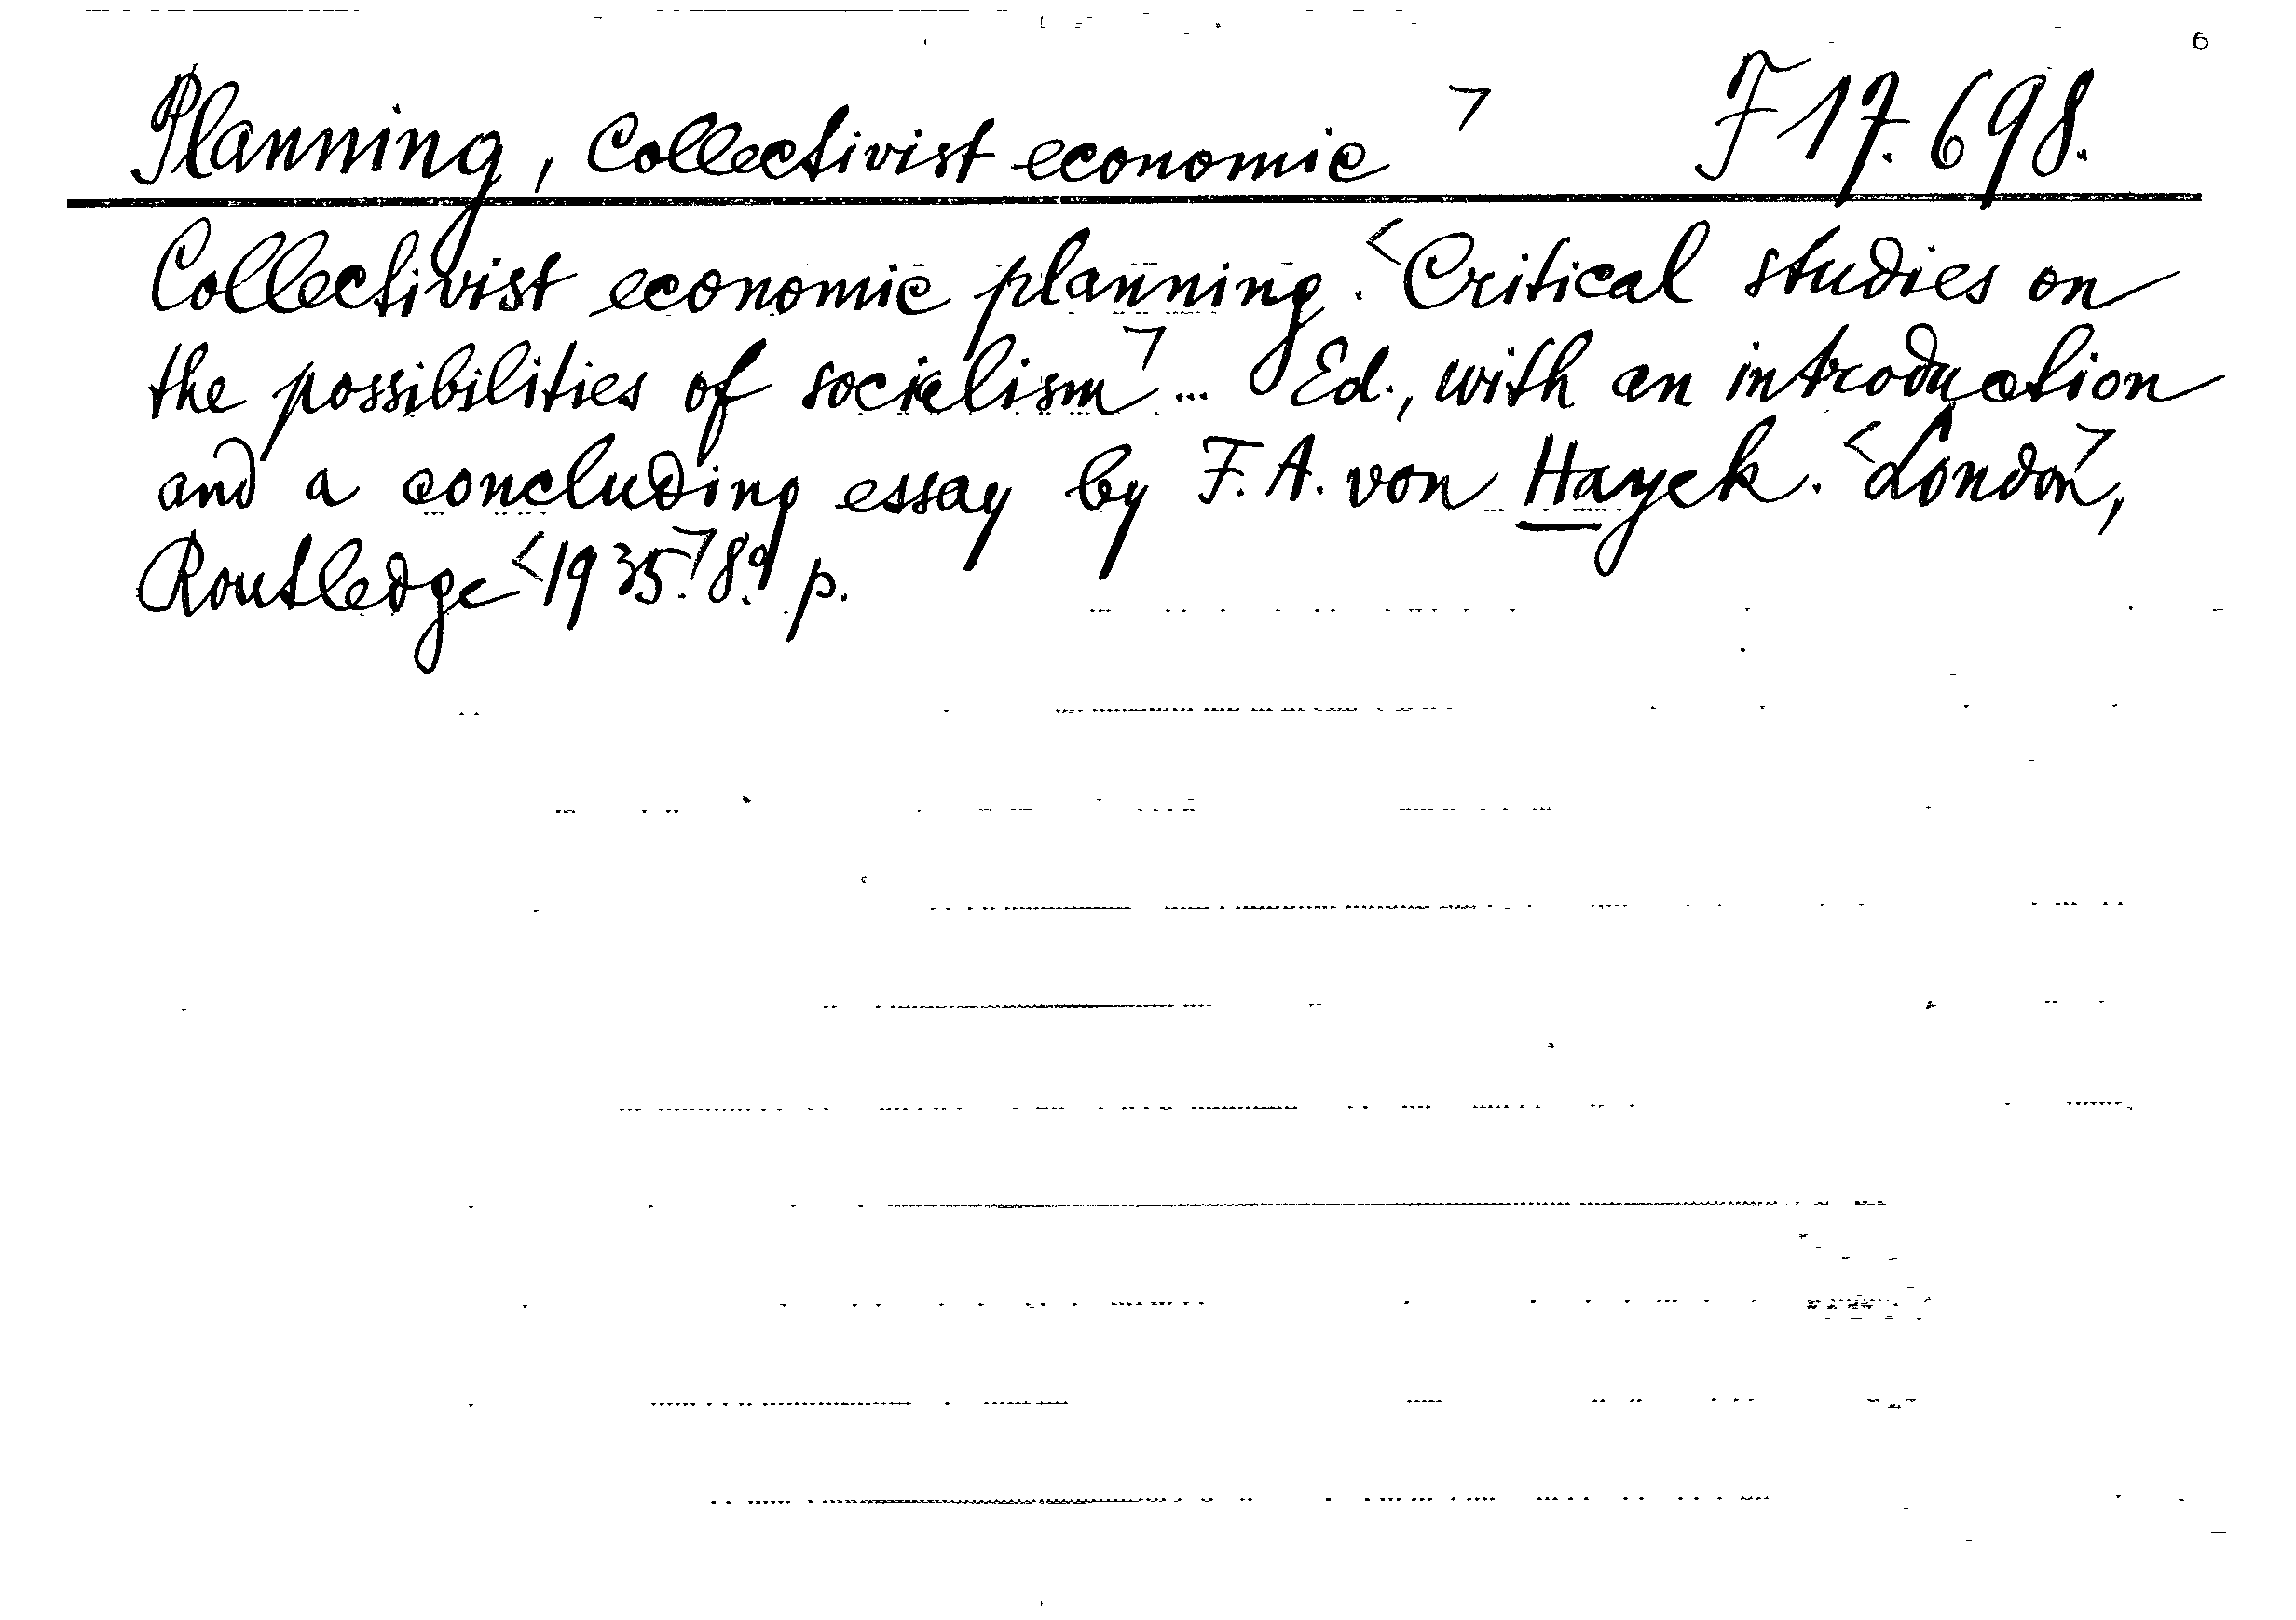 6
Planning, Collectivist economic ⌝ F 17.698.
Collectivist economic planning. <Critical studies on
the possibilities of socialism⌝ ... Ed., with an introduction
and a concluding essay by F. A. von Hayek. <London⌝,
Routledge <1935.⌝ 8° p.